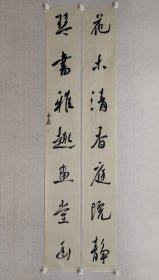 花木清香庭院静
琴書雅趣画堂幽